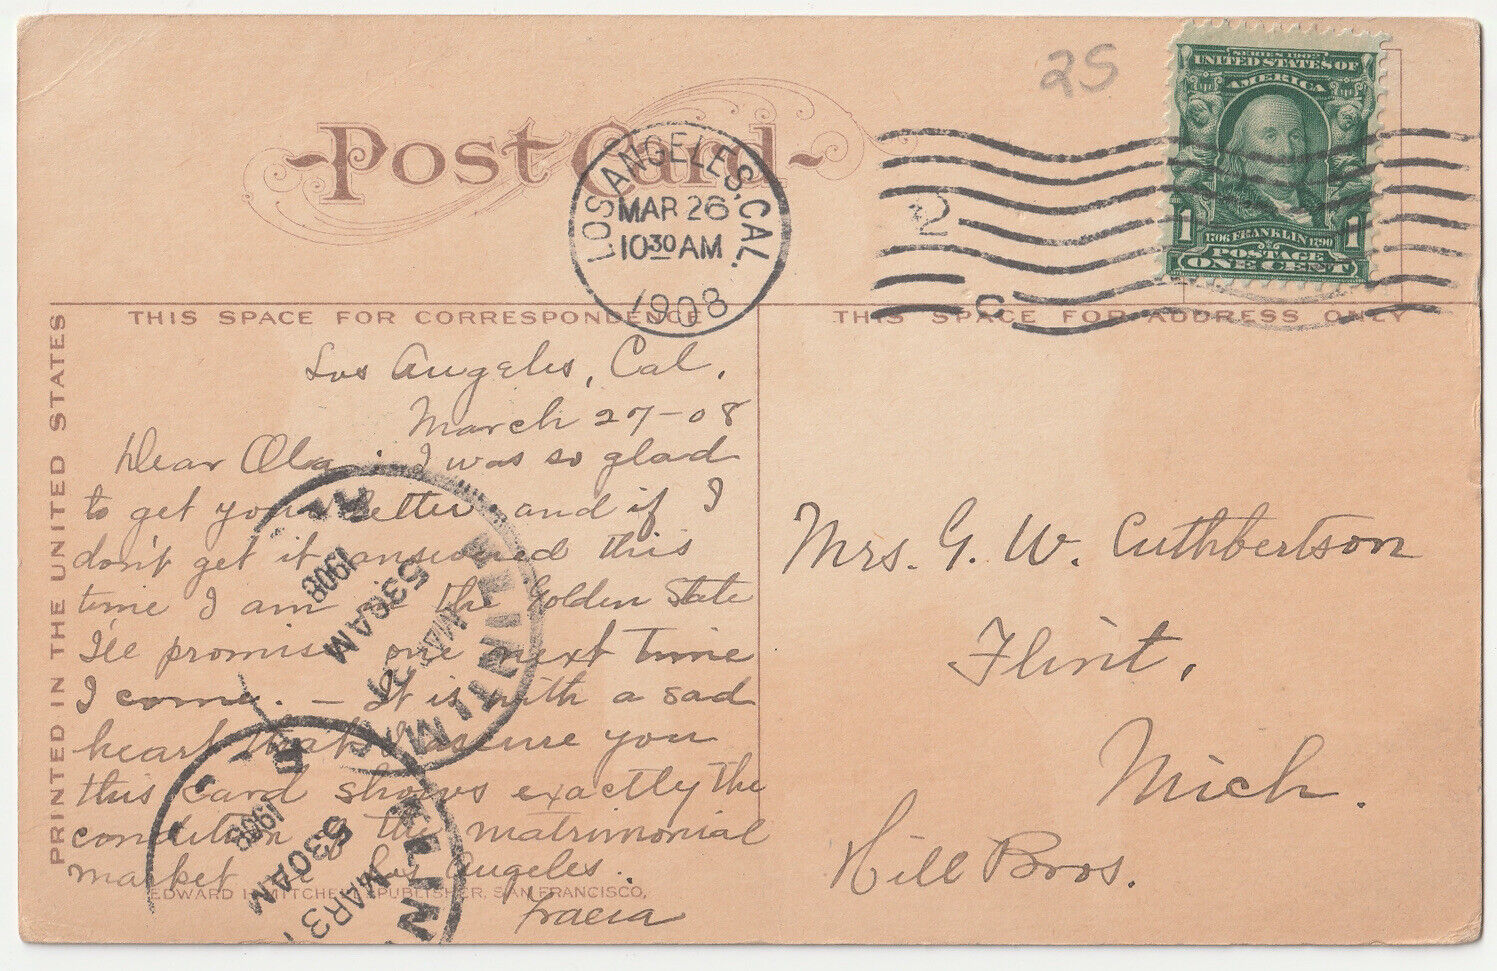 25
SERIES 1902
UNITED STATES OF
AMERICA
1 1
1706 FRANKLIN 1790
POSTAGE
ONE CENT
Post Card
LOS ANGELES, CAL.
MAR 26
10 30 AM
1908
2
C
THIS SPACE FOR CORRESPONDENCE
THIS SPACE FOR ADDRESS ONLY
PRINTED IN THE UNITED STATES
Los Angeles, Cal,
March 27-08
Dear Ola: I was so glad
to get your letter and if I
don't get it answered this
time I am in the Golden State
I'll promise one next time
I come. – It is with a sad
heart that I assure you
this card shows exactly the
condition of the matrimonial
market in Los Angeles.
EDWARD H. MITCHELL, PUBLISHER, SAN FRANCISCO,
FLINT MICH
MAR 31
530AM
1908
FLIN
MAR 31
530AM
1908
Mrs. G. W. Cuthbertson
Flint,
Mich.
Hill Bros.